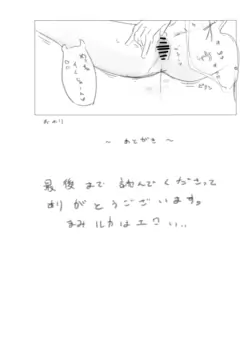 おわり
～ あとがき ～
最後まで読んでくださって
ありがとうございます。
まみルカはエロい..